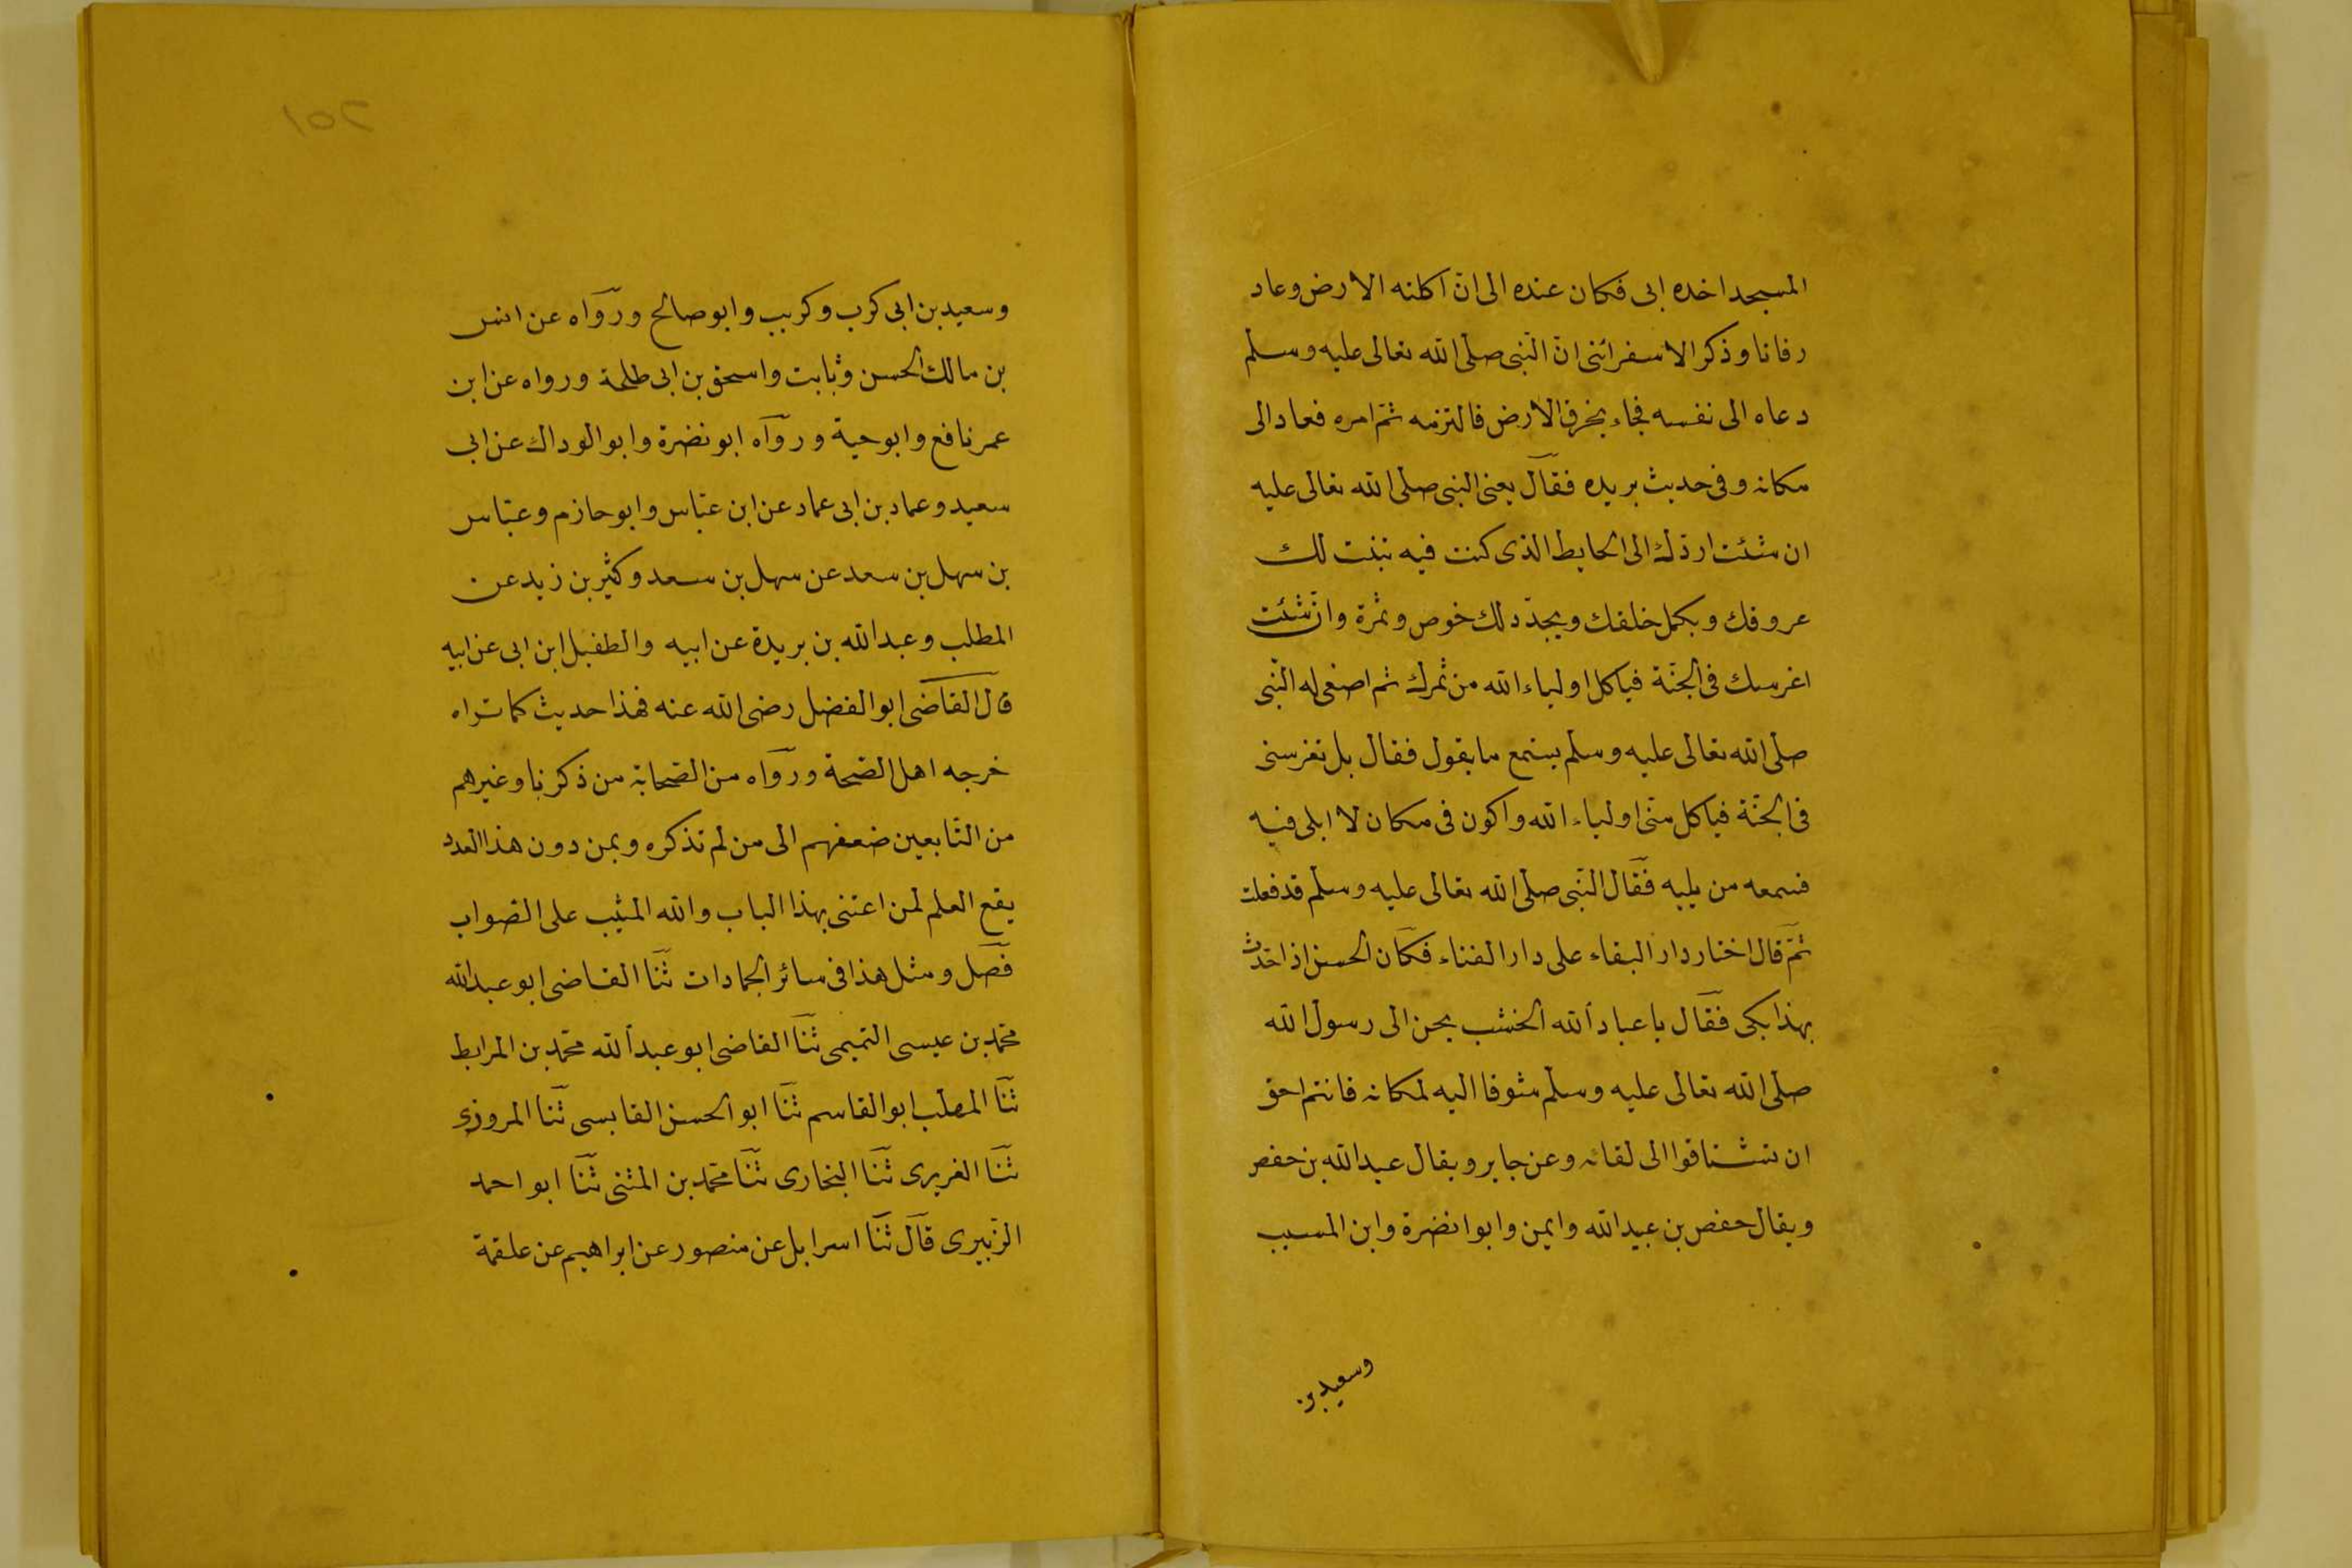 المسجد اخده ابى فكان عنده الى ان اكلته الارض وعاد
رفاتا وذكر الاسفرائنى انّ النّبى صلّى الله تعالى عليه وسلم
دعاه الى نفسه فجاء يخرق الارض فالتزمه ثمّ امره فعاد الى
مكانه وفى حديث بريده فقال يعنى النبى صلى الله تعالى عليه
ان شئت اردّك الى الحايط الذى كنت فيه تنبت لك
عروقك ويكمل خلقك ويجدّد لك خوص وثمرة وان شئت
اغرسك فى الجنّة فياكل اولياء الله من ثمرك ثم اصغى له النّبى
صلّى الله تعالى عليه وسلّم يستمع ما يقول فقال بل تغرسنى
فى الجنّة فياكل منّى اولياء الله واكون فى مكان لا ابلى فيه
فسمعه من يليه فقال النّبى صلّى الله تعالى عليه وسلّم قد فعلت
ثمّ قال اختار دار البقاء على دار الفناء فكان الحسن اذا حدّث
بهذا بكى فقال يا عباد الله الخشب يحن الى رسول الله
صلّى الله تعالى عليه وسلّم شوقا اليه لمكانه فانتم احق
ان تشتاقوا الى لقائه وعن جابر ويقال عبد الله بن حفص
ويقال حفص بن عبيد الله وايمن وابوا نضرة وابن المسيب
وسعيد بن
٢٥١
وسعيد بن ابى كرب وكريب وابو صالح ورواه عن انس
بن مالك الحسن وثابت واسحق بن ابى طلحة ورواه عن ابن
عمر نافع وابو حية ورواه ابو نضرة وابو الوداك عن ابى
سعيد وعماد بن ابى عماد عن ابن عبّاس وابو حازم وعبّاس
بن سهل بن سعد عن سهل بن سعد وكثير بن زيد عن
المطلب وعبد الله بن بريدة عن ابيه والطفيل ابن ابى عن ابيه
قال القاضى ابو الفضل رضى الله عنه فهذا حديث كما تراه
خرجه اهل الصّحة ورواه من الصّحابة من ذكرنا وغيرهم
من التّابعين ضعفهم الى من لم نذكره وبمن دون هذا العدد
يقع العلم لمن اعتنى بهذا الباب والله المثيب على الصّواب
فصل ومثل هذا فى سائر الجمادات ثنا القاضى ابو عبد الله
محمّد بن عيسى التميمى ثنا القاضى ابو عبد الله محمّد بن المرابط
ثنا المهلّب ابو القاسم ثنا ابو الحسن القابسى ثنا المروزى
ثنا الفربرى ثنا البخارى ثنا محمّد بن المثنى ثنا ابو احمد
الزّبيرى قال ثنا اسرايل عن منصور عن ابراهيم عن علقمة